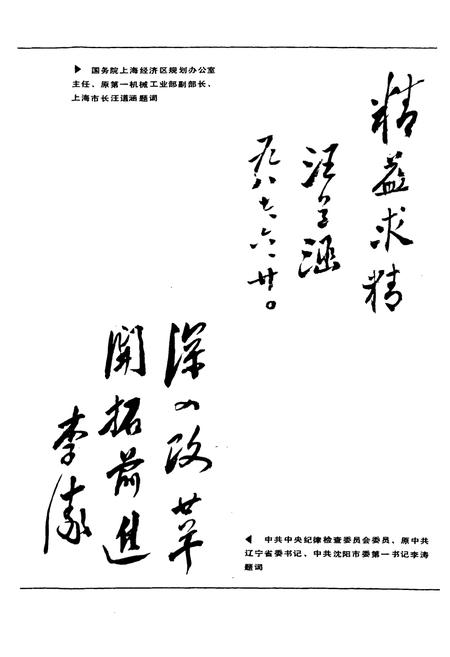 ▶ 国务院上海经济区规划办公室
主任、原第一机械工业部副部长、
上海市长汪道涵题词
精益求精
汪道涵
一九八七、六、廿。
深入改革
开拓前进
李涛
◀ 中共中央纪律检查委员会委员、原中共
辽宁省委书记、中共沈阳市委第一书记李涛
题词